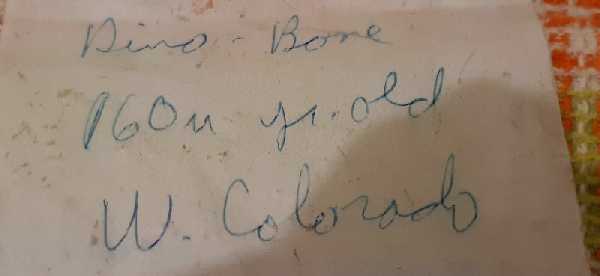 Dino-Bone
160m yr. old
W. Colorado